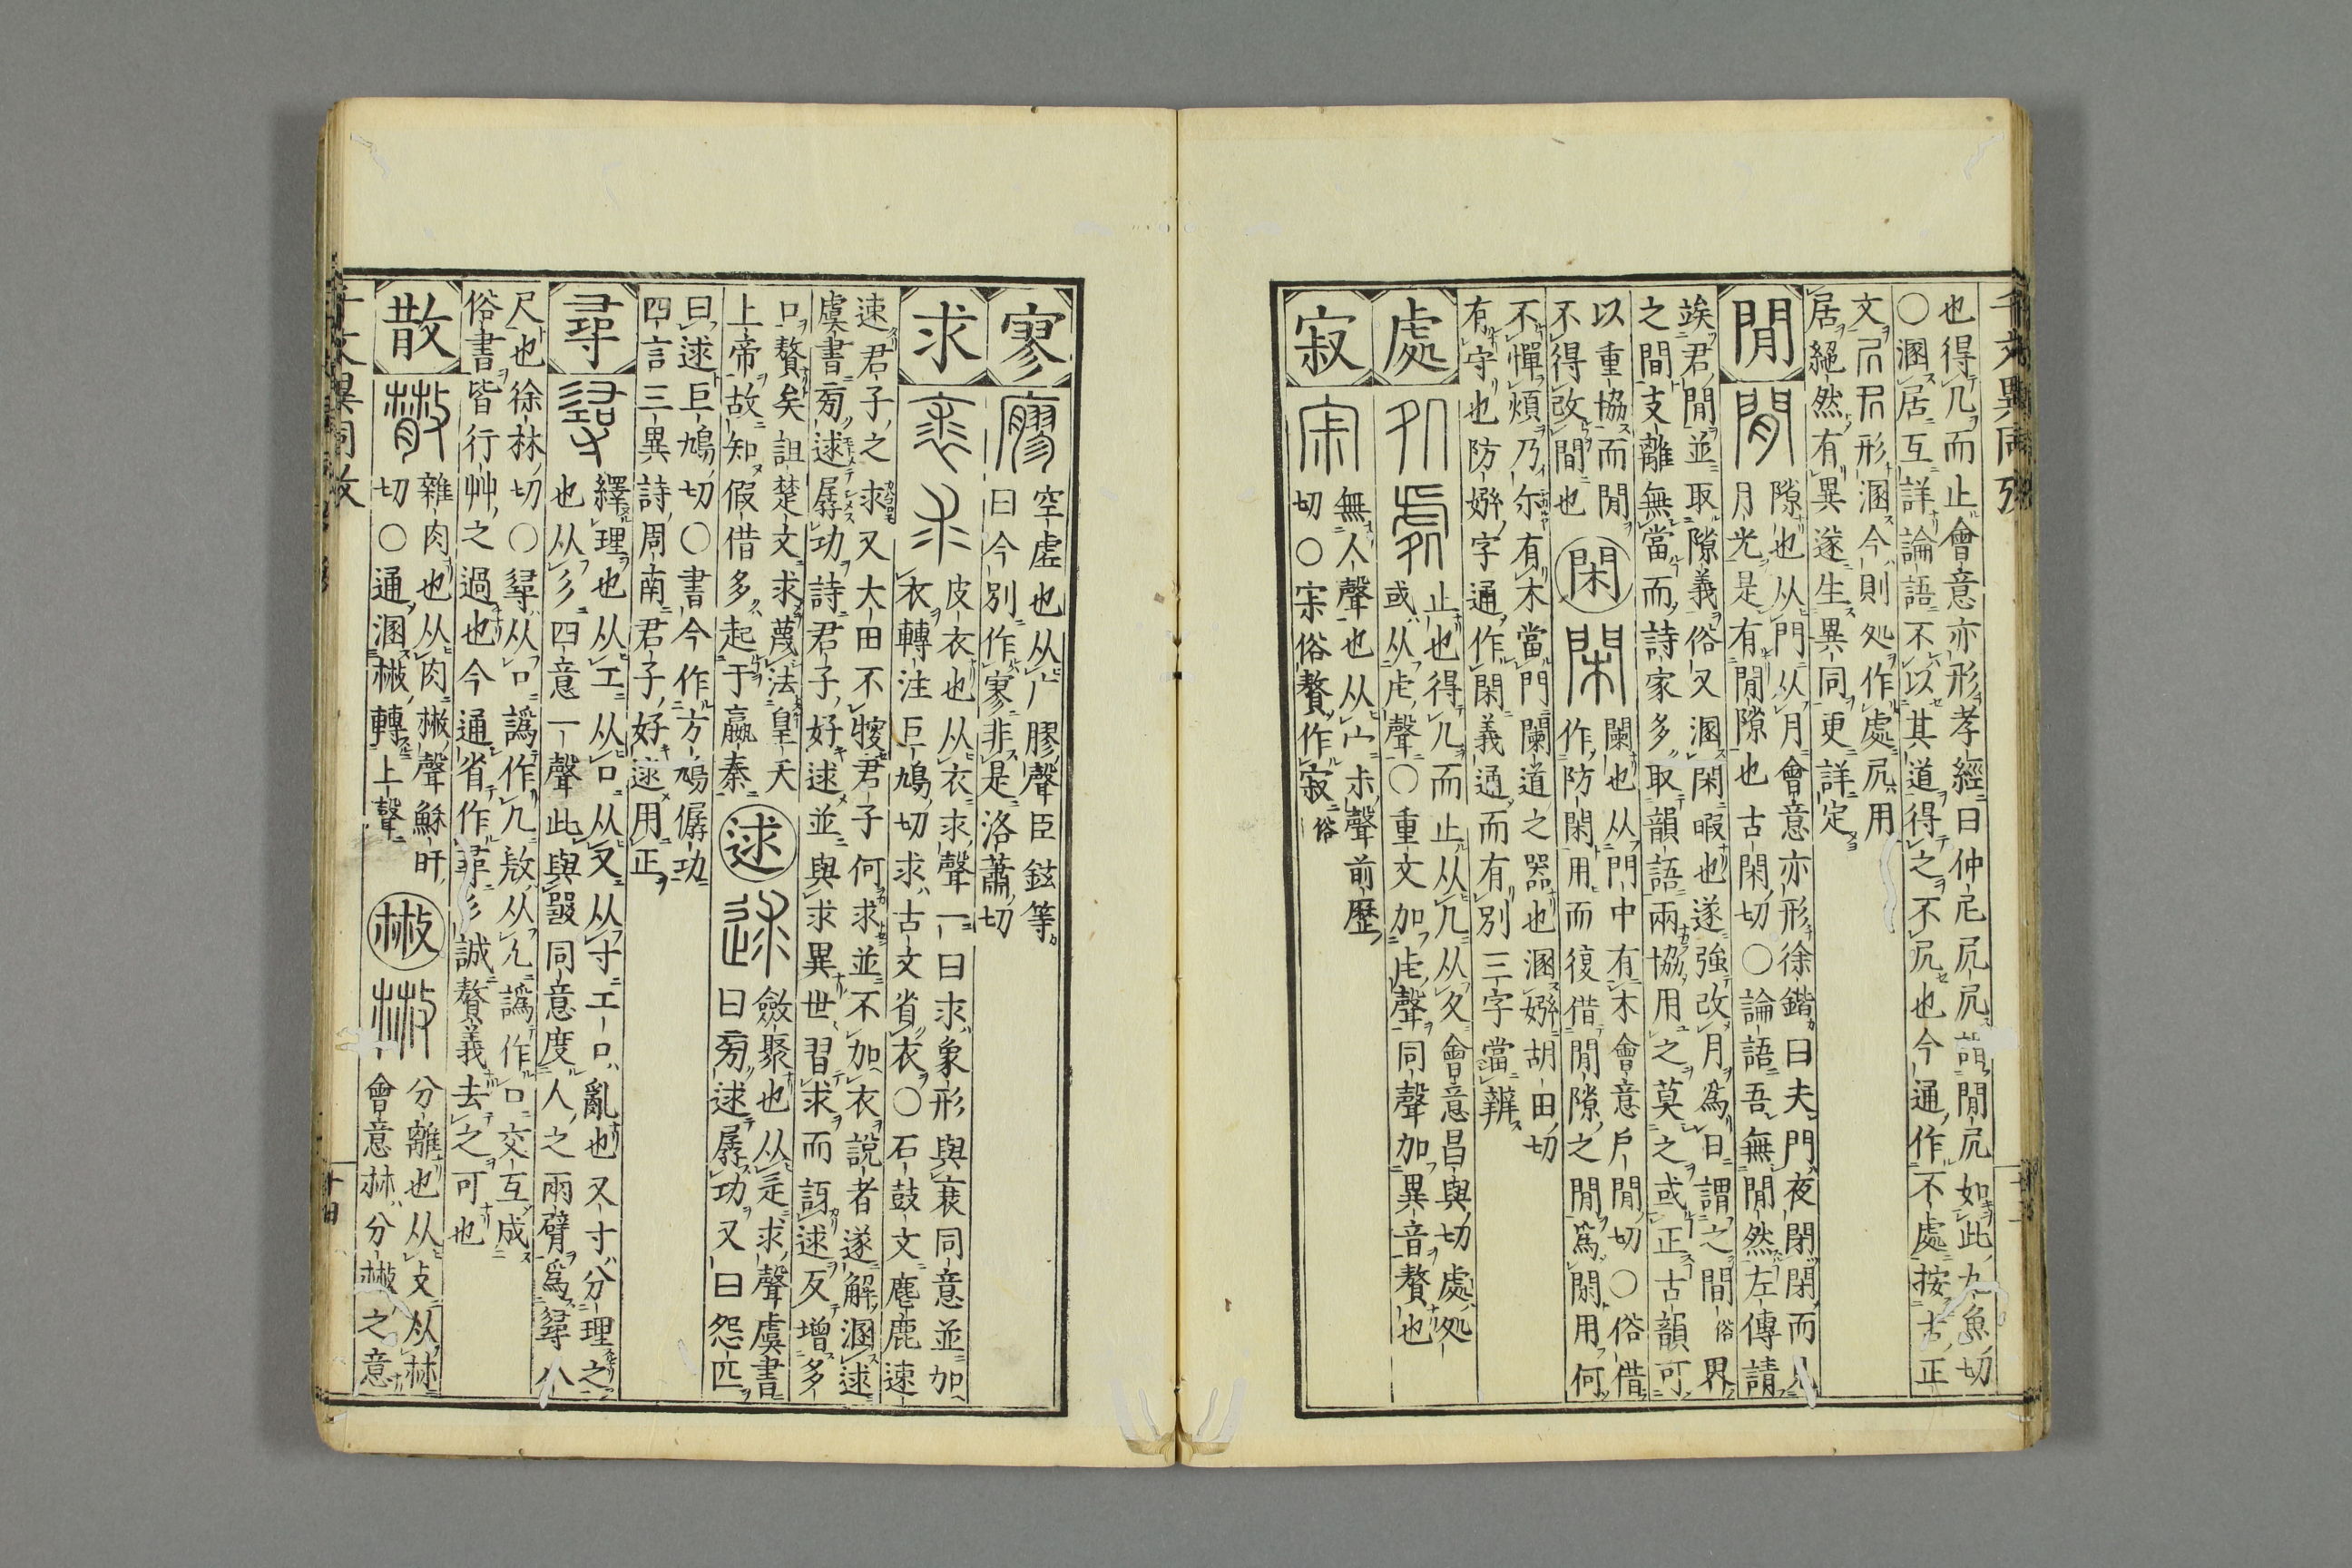 也得几而止會意亦形孝經曰仲尼凥凥謂閒凥如此九魚切
○溷居互詳論語不以其道得之不凥也今通作不處按古正
文凥形溷今則処作處凥用
居絕然有異遂生異同更詳定
閒
隙也从門从月會意亦形徐鍇曰夫門夜閉閉而見
月光是有閒隙也古閑切○論語吾無閒然左傳請
竢君閒並取隙義俗又溷閑暇也遂強改月爲日謂之間俗界
之間支離無當而詩家多取韻語兩協用之莫之或正古韻可
以重協而閒
不得改間也
閑
闌也从門中有木會意戶閒切○俗借
作防閑用而復借閒隙之閒爲閑用何
不憚煩乃尔有木當門闌道之器也溷嫺胡田切
有守也防嫺字通作閑義通而有別三字當辨
處
止也得几而止从几从夊會意昌與切處処
或从虍聲○重文加虍聲同聲加異音贅也
寂
無人聲也从宀尗聲前歷
切○宗俗贅作寂俗
寥
空虛也从广膠聲臣鉉等
曰今別作寥非是洛蕭切
求
皮衣也从衣求聲一曰求象形與衰同意並加
衣轉注巨鳩切求古文省衣○石鼓文麀鹿速
速君子之求又大田不㹽君子何求並不加衣說者遂解溷逑
虞書㫄逑孱功詩君子好逑並與求異世習求而訝逑反增多
口贅矣詛楚文求蔑法皇天
上帝故知假借多起于嬴秦
逑
斂聚也从辵求聲虞書
曰㫄逑孱功又曰怨匹
曰逑巨鳩切○書今作方鳩僝功
四言三異詩周南君子好逑用正
尋
繹理也从工从口从又从寸工口亂也又寸分理之
也从彡四意一聲此與𤕦同意度人之兩臂爲尋八
尺也徐林切○尋从口譌作几𣪘从几譌作口交互成
俗書皆行艸之過也今通省作尋彡誠贅義去之可也
散
雜肉也从肉㪔聲穌旰
切○通溷㪔轉上聲
㪔
分離也从攴从𣏟
會意𣏟分㪔之意